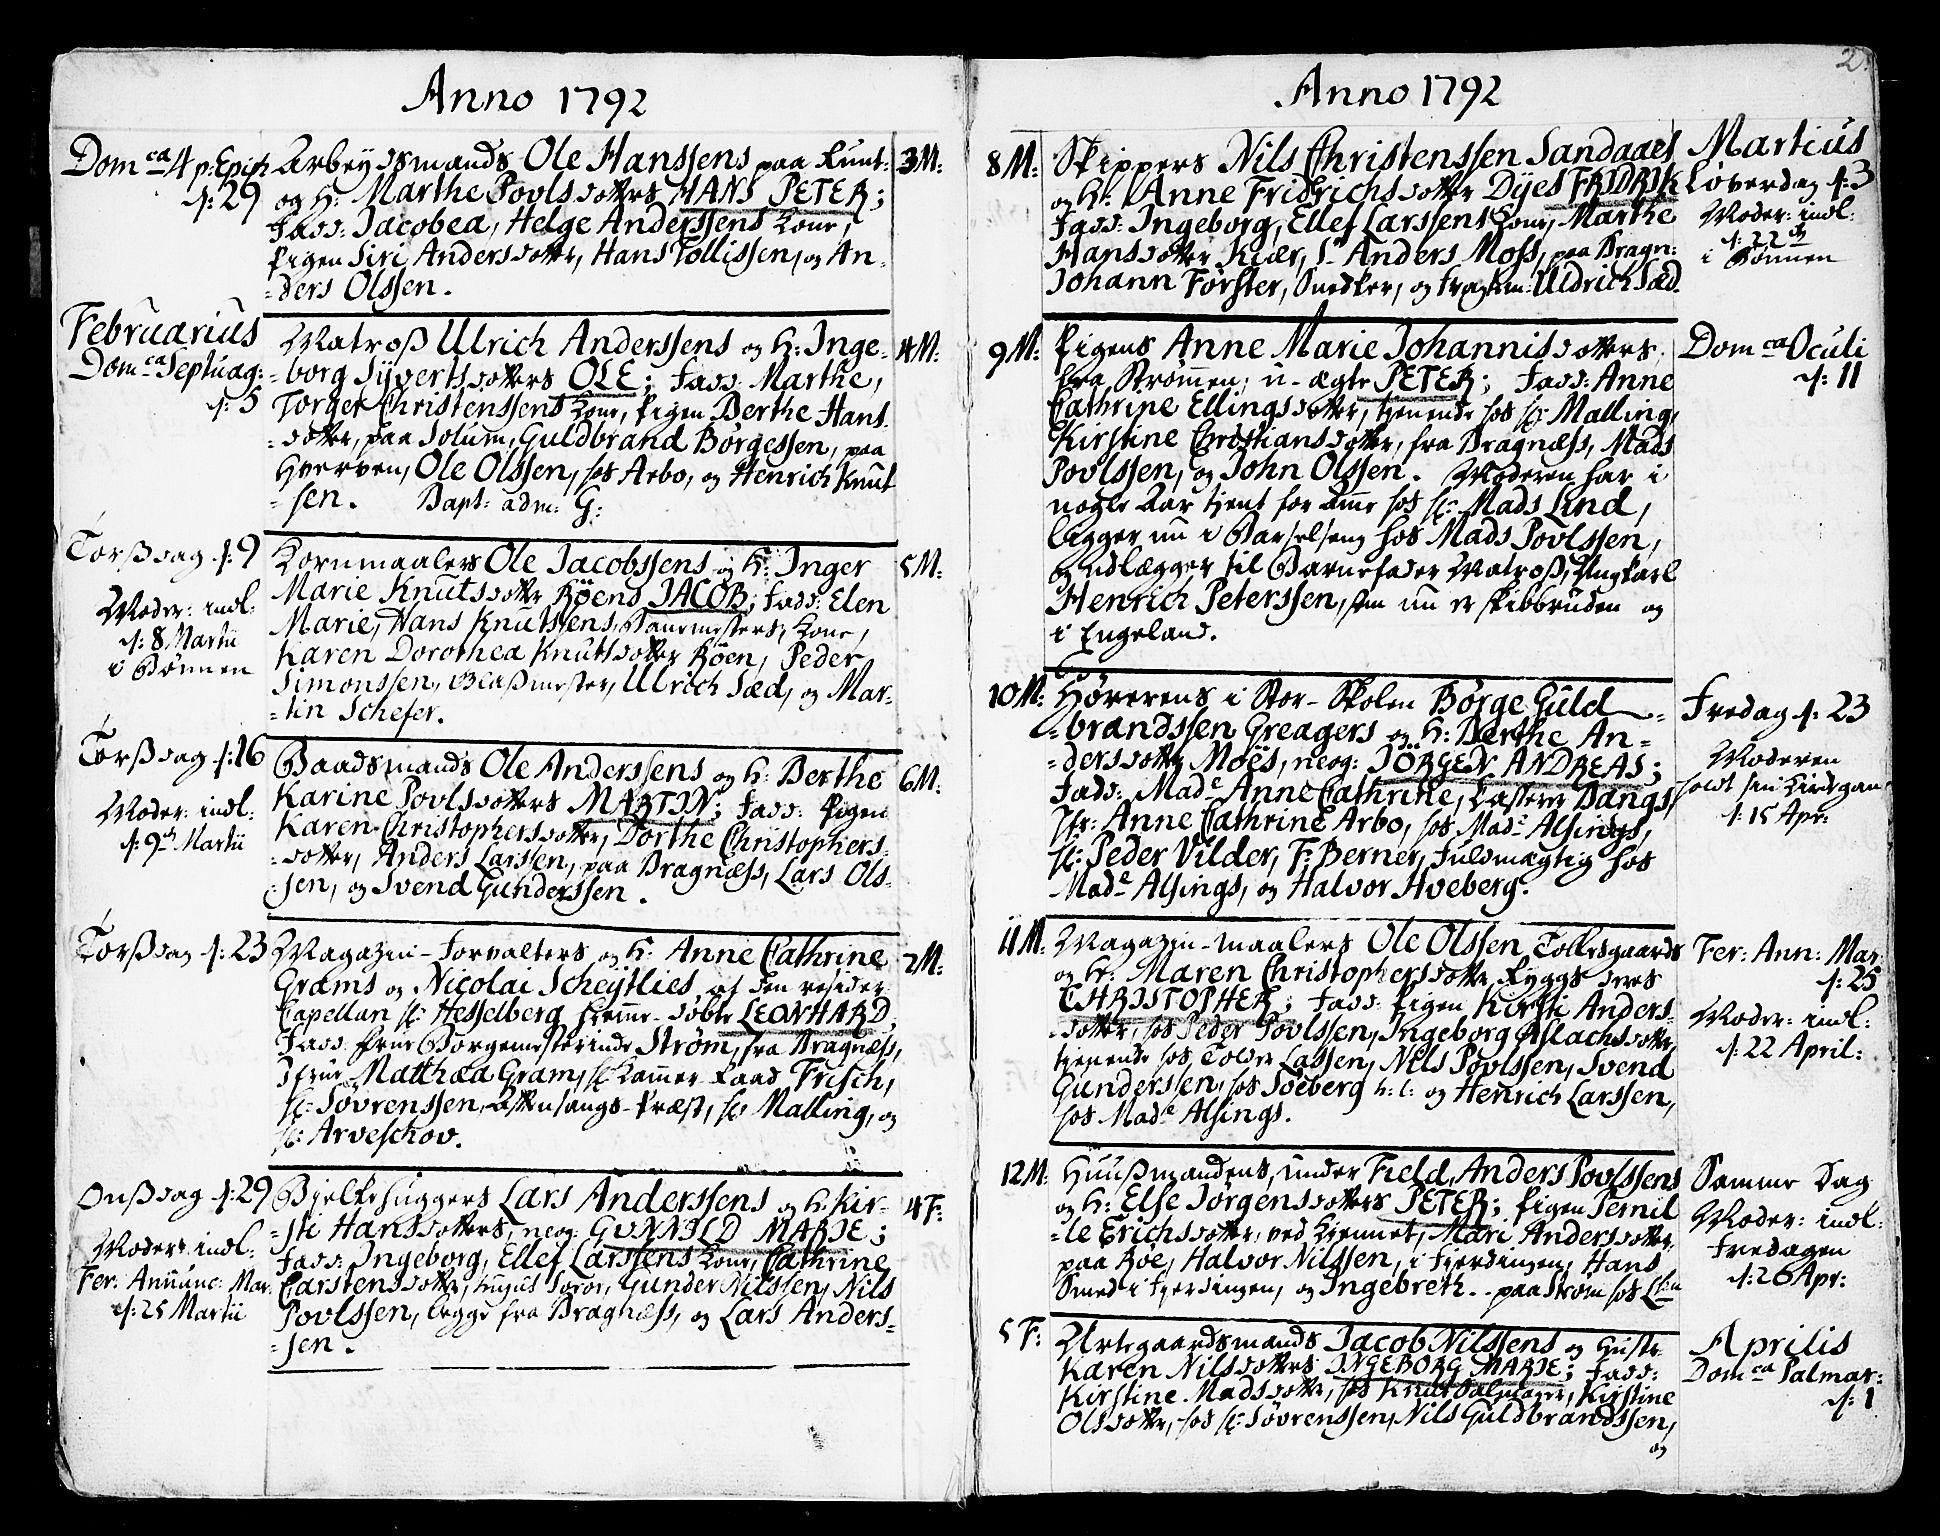 Anno 1792
Dom ca 4 p. Epiph
d: 29
Arbeydsmands Ole Hanssens paa Tunt:
og H: Marthe Povlsdotters HANS PETER;
Fadd: Jacobea, Helge Anderssens Kone,
Pigen Siri Andersdotter, Hans Tollissen, og An-
-ders Olssen.
3 M:
Februarius
Dom ca Septuag:
d: 5
Matroß Ulrich Anderssens og H: Inge-
-borg Syvertsdotters OLE; Fadd: Marthe,
Torger Christenssens Kone, Pigen Berthe Hans-
-dotter, paa Solum, Guldbrand Börgessen, paa
Hverven, Ole Olssen, hos Arbo, og Henrich Knut
-sen. Bapt: adm: G:
4 M:
Torßdag d: 9
Moder: indl:
d: 8 Martii
i Bönnen
Kornmaalers Ole Jacobssens og H: Inger
Marie Knutsdotter Röens JACOB; Fadd: Elen
Marie, Hans Knutssens, Kone,
Karen Dorothea Knutsdotter Röen, Peder
Simonssen, Glaßmester, Ulrich Sæd, og Mar-
-tin Schefer.
5 M:
Torßdag d: 16
Moder: indl:
d: 9de Martii
Baadsmands Ole Anderssens og H: Berthe
Karine Povlsdotters MARTIN; Fadd: Pigen
Karen Christophersdotter, Dorthe Christophers-
-dotter, Anders Larssen, paa Bragnæss, Lars Ols-
-sen, og Svend Gunderssen.
6 M:
Torßdag d: 23
Magazin-Forvalters og H: Anne Cathrine
Grams og Nicolai Scheitlies af den resider:
Capellan Hr: Hesselberg hjemme-döbte LEONHARD
Fadd: Frue Borgemesterinde Ström, fra Bragnæss,
Jfrue Matthæa Gram, Hr: Kammer-Raad Frisch,
Hr: Sövrenssen, Aftensangs-Præst, Hr: Malling, og
Hr: Arveschov.
7 M:
Onßdag d: 29
Moder: indl:
Fer: Annunc: Mar:
d: 25 Martii
Bjelkehuggers Lars Anderssens og H: Kir-
-sti Hansdotters, neog: GUNNILD MARIE;
Fadd: Ingeborg, Ellef Larssens Kone, Cathrine
Carstensdotter, hujus soror, Gunder Nilssen, Nils
Povlssen, begge fra Bragnæss, og Lars Anders-
-sen.
4 F:
2.
Anno 1792
8 M:
Skippers Nils Christenssen Sandaaes
og H: Anne Fridrichsdotter Dyes FRIDRIK
Fadd: Ingeborg, Ellef Larssens Kone, Marthe
Hansdotter Kiær, Sr Anders Moss, paa Bragn:
Johann Förster, Snedker, og Uldrich Sæd.
Martius
Löverdag d: 3
Moder: indl:
d: 22de
i Bönnen
9 M:
Pigens Anne Marie Johannisdotters
fra Strömmen, u-ægte PETER; Fadd: Anne
Cathrine Ellingsdotter, tjenende hos Hr: Malling,
Kirstine Christiansdotter, fra Bragnæss, Mads
Povlssen, og John Olssen. Moderen har i
nogle Aar tjent for Amme hos Hr: Mads Lind,
ligger nu i Barselseng hos Mads Povlssen,
og udlægger til Barnefader Matroß, Ungkarl
Henrich Peterssen, som nu er skibbruden og
i Engeland.
Dom ca Oculi
d: 11
10 M:
Hörerens i Stor-Skolen Börge Guld-
-brandssen Greagers og H: Berthe An-
-dersdotter Moës, neog: JÖRGEN ANDREAS;
Fadd: Made Anne Cathrine, Casper Bangs,
Jfr: Anne Cathrine Arbo, hos Made Alsings,
Hr: Peder Vilder, F: Berner, Fuldmægtig hos
Made Alsings, og Halvor Hveberg.
Fredag d: 23
Moderen
holdt sin Kirkegang
d: 15 Apr:
11 M:
Magazin-maalers Ole Olssen Tollesgaards
og H: Maren Christophersdotter Ryggs deres
CHRISTOPHER; Fadd: Pigen Kirsti Anders-
-dotter, hos Peder Povlssen, Ingeborg Aslachsdotter,
tjenende hos Tolder Lassen, Nils Povlssen, Svend
Gunderssen, hos Soeberg og Henrich Larssen,
hos Made Alsings.
Fer: Ann: Mar:
d: 25
Moder: indl:
d: 22 April:
12 M:
Huußmandens, under Field, Anders Povlssens
og H: Else Jörgensdotters PETER; Pigen Pernil
-le Erichsdotter, ved Kjennet, Mari Andersdotter,
paa Röe, Halvor Nilssen, i Fjerdingen, Hans
Smed i Fjerdingen, og Ingebreth - - paa Ström hos
Samme Dag
Moder: indl:
Fredagen
d: 26 Apr:
5 F:
Urtegaardsmands Jacob Nilssens og Hustr:
Karen Nilsdotters INGEBORG MARIE; Fadd:
Kirstine Madsdotter, hos Knut Salmager, Kirstine
Olsdotter, hos Hr: Sövrenssen, Nils Guldbrandssen,
og
Aprilis
Dom ca Palmar:
d: 1